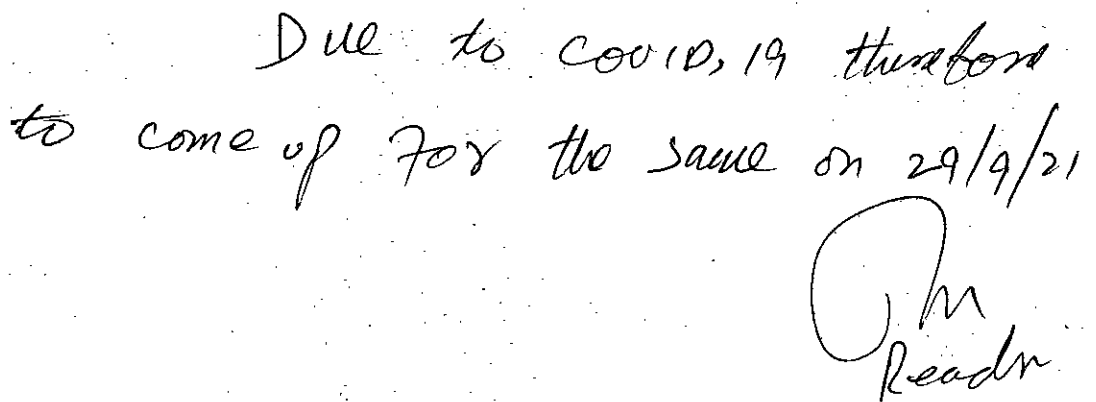 Due to COVID, 19 therefore
to come up For the same on 29/9/21
Reader